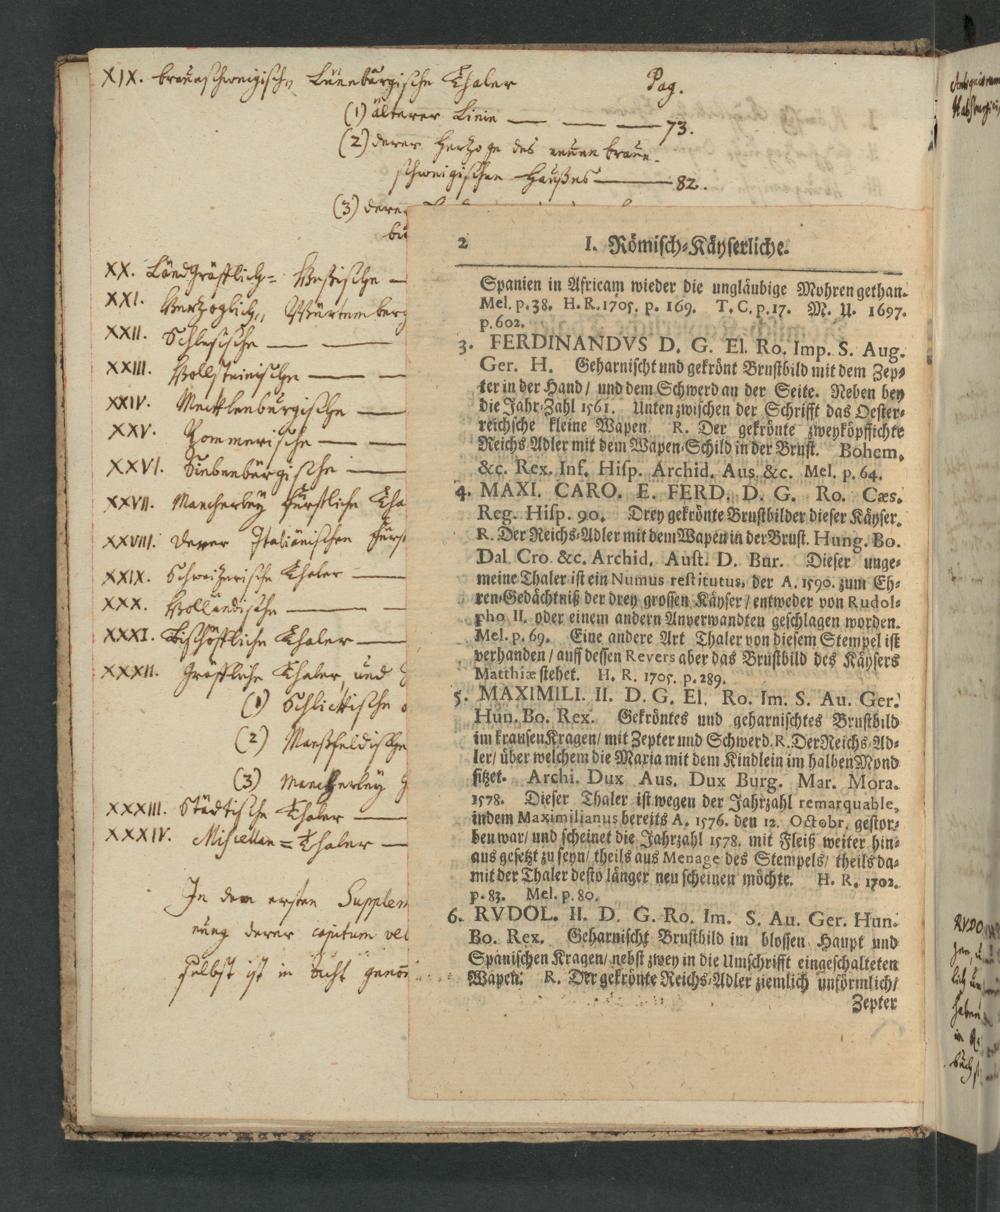 XIX. Braunschweigische Lüneburgische Thaler Pag.
(1) älterer Linie — — — 73.
(2) derer Hertzoge des neuen braun-
schweigischen Haußes — 82.
(3) derer
XX. Landgräfflich- Heßische —
XXI. Hertzoglich, Würtemberg
XXII. Schlesische — —
XXIII. Hollsteinische —
XXIV. Mecklenburgische —
XXV. Pommerische — —
XXVI. Siebenbürgische —
XXVII. Mancherley Fürstliche Tha
XXVIII. Derer Italiänischen Fürst
XXIX. Schweitzerische Thaler —
XXX. Holländische —
XXXI. Bischöffliche Thaler —
XXXII. Gräffliche Thaler, und
(1) Schlickische
(2) Mansfeldische
(3) Mancherley G
XXXIII. Städtische Thaler —
XXXIV. Miscellan = Thaler —
In dem ersten Supplem
nung derer
selbst ist in acht genom
2 I. Römisch-Käyserliche.
Spanien in Africam wieder die ungläubige Mohren gethan.
Mel. p. 38. H. R. 1705. p. 169. T. C. p. 17. M. U. 1697.
p. 602.
3. FERDINANDVS D. G. El. Ro. Imp. S. Aug.
Ger. H. Geharnischt und gekrönt Brustbild mit dem Zep-
ter in der Hand / und dem Schwerd an der Seite. Neben bey
die Jahr-Zahl 1561. Unten zwischen der Schrifft das Oester-
reichsche kleine Wapen. R. Der gekrönte zweyköpffichte
Reichs-Adler mit dem Wapen-Schild in der Brust. Bohem.
&c. Rex. Inf. Hisp. Archid. Aus. &c. Mel. p. 64.
4. MAXI. CARO. E. FERD. D. G. Ro. Cæs.
Reg. Hisp. 90. Drey gekrönte Brustbilder dieser Käyser.
R. Der Reichs-Adler mit dem Wapen in der Brust. Hung. Bo.
Dal Cro. &c. Archid. Aust. D. Bur. Dieser unge-
meine Thaler ist ein Numus restitutus, der A. 1590. zum Eh-
ren-Gedächtniß der drey grossen Käyser / entweder von Rudol-
pho II. oder einem andern Anverwandten geschlagen worden.
Mel. p. 69. Eine andere Art Thaler von diesem Stempel ist
verhanden / auff dessen Revers aber das Brustbild des Käysers
Matthiæ stehet. H. R. 1705. p. 289.
5. MAXIMILI. II. D. G. El. Ro. Im. S. Au. Ger.
Hun. Bo. Rex. Gekröntes und geharnischtes Brustbild
im krausen Kragen / mit Zepter und Schwerd. R. Der Reichs-Ad-
ler / über welchem die Maria mit dem Kindlein im halben Mond
sitzet. Archi. Dux Aus. Dux Burg. Mar. Mora.
1578. Dieser Thaler ist wegen der Jahrzahl remarquable,
indem Maximilianus bereits A. 1576. den 12. Octobr. gestor-
ben war / und scheinet die Jahrzahl 1578. mit Fleiß weiter hin-
aus gesetzt zu seyn / theils aus Menage des Stempels / theils da-
mit der Thaler desto länger neu scheinen möchte. H. R. 1702.
p. 83. Mel. p. 80.
6. RVDOL. II. D. G. Ro. Im. S. Au. Ger. Hun.
Bo. Rex. Geharnischt Brustbild im blossen Haupt und
Spanischen Kragen / nebst zwey in die Umschrifft eingeschalteten
Wapen. R. Der gekrönte Reichs-Adler ziemlich unförmlich /
Zepter